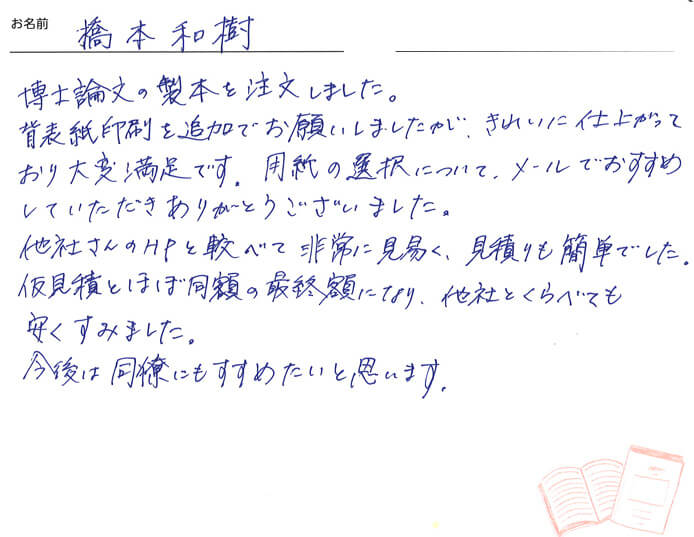 お名前 橋本和樹
博士論文の製本を注文しました。
背表紙印刷を追加でお願いしましたが、きれいに仕上がって
おり大変満足です。用紙の選択について、メールでおすすめ
していただきありがとうございました。
他社さんのHPと較べて非常に見易く、見積りも簡単でした。
仮見積とほぼ同額の最終額になり、他社とくらべても
安くすみました。
今後は同僚にもすすめたいと思います。